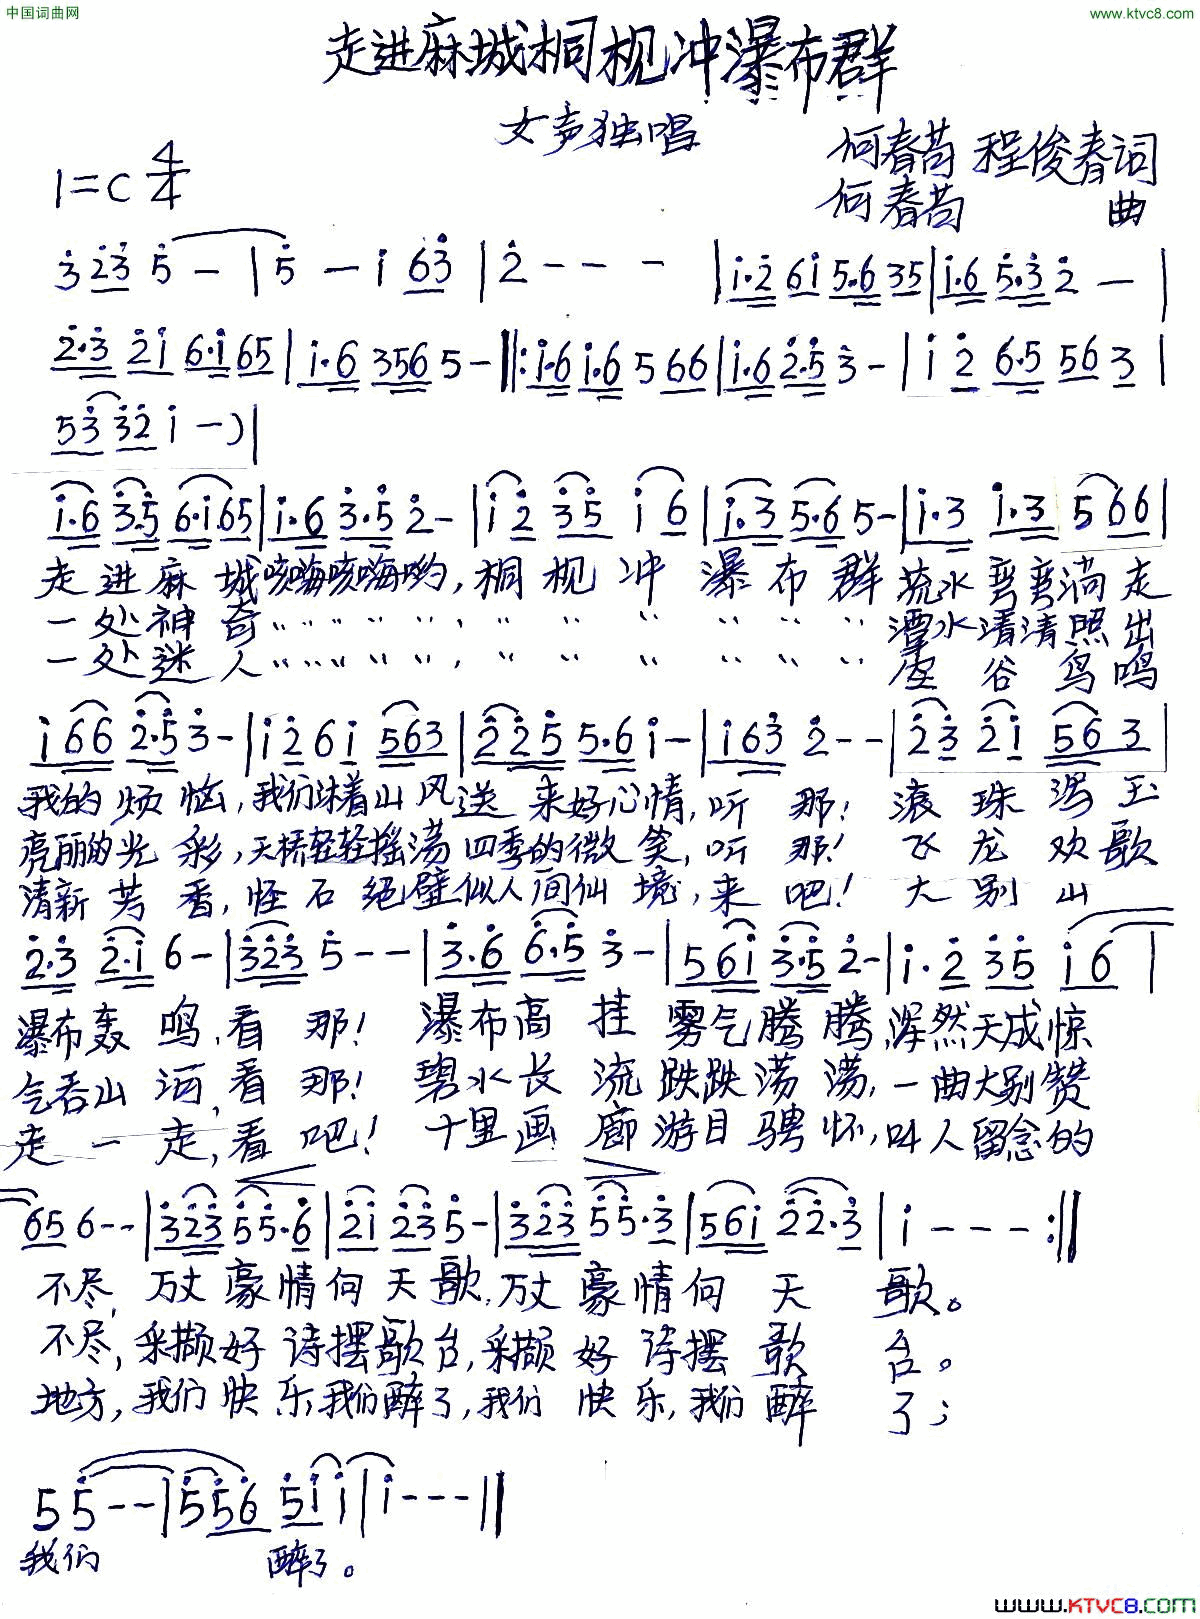 中国词曲网
www.ktvc8.com
走进麻城桐枧冲瀑布群
女声独唱
何春苟 程俊春词
1=C 4/4
何春苟 曲
3 23 5 - | 5 - i 63 | 2 - - - | i·2 6i 5·6 35 | i·6 5·3 2 - |
2·3 2i 6·i 65 | i·6 356 5 - ||: i·6 i·6 5 66 | i·6 2·5 3 - | i 2 6·5 56 3 |
53 32 i - ) |
i·6 3·5 6·i 65 | i·6 3·5 2 - | i 2 35 i 6 | i·3 5·6 5 - | i·3 i·3 5 66 |
走进麻城咳嗨咳嗨哟,桐枧冲瀑布群流水弯弯淌走
一处神奇〃〃〃〃〃,〃〃〃〃〃〃潭水清清照出
一处迷人〃〃〃〃〃,〃〃〃〃〃〃空谷鸟鸣
i 66 2·5 3 - | i 2 6 i 563 | 2 25 5·6 i - | i 63 2 - - | 23 2i 56 3 |
我的烦恼,我们沐着山风送来好心情,听那!滚珠泻玉
亮丽的光彩,天桥轻轻摇荡四季的微笑,听那!飞龙欢歌
清新芳香,怪石绝壁似人间仙境,来吧!大别山
2·3 2·i 6 - | 323 5 - - | 3·6 6·5 3 - | 56i 3·5 2 - | i·2 35 i 6 |
瀑布轰鸣,看那!瀑布高挂雾气腾腾,浑然天成惊
气吞山河,看那!碧水长流跌跌荡荡,一曲大别赞
走一走,看吧!十里画廊游目骋怀,叫人留念的
65 6 - - | 323 55·6 | 2i 23 5 - | 323 55·3 | 56i 22·3 | i - - - :||
不尽,万丈豪情向天歌,万丈豪情向天歌。
不尽,采撷好诗摆歌台,采撷好诗摆歌台。
地方,我们快乐,我们醉了,我们快乐,我们醉了;
5 5 - - | 5 56 5i i | i - - - ||
我们 醉了。
www.KTVC8.COM